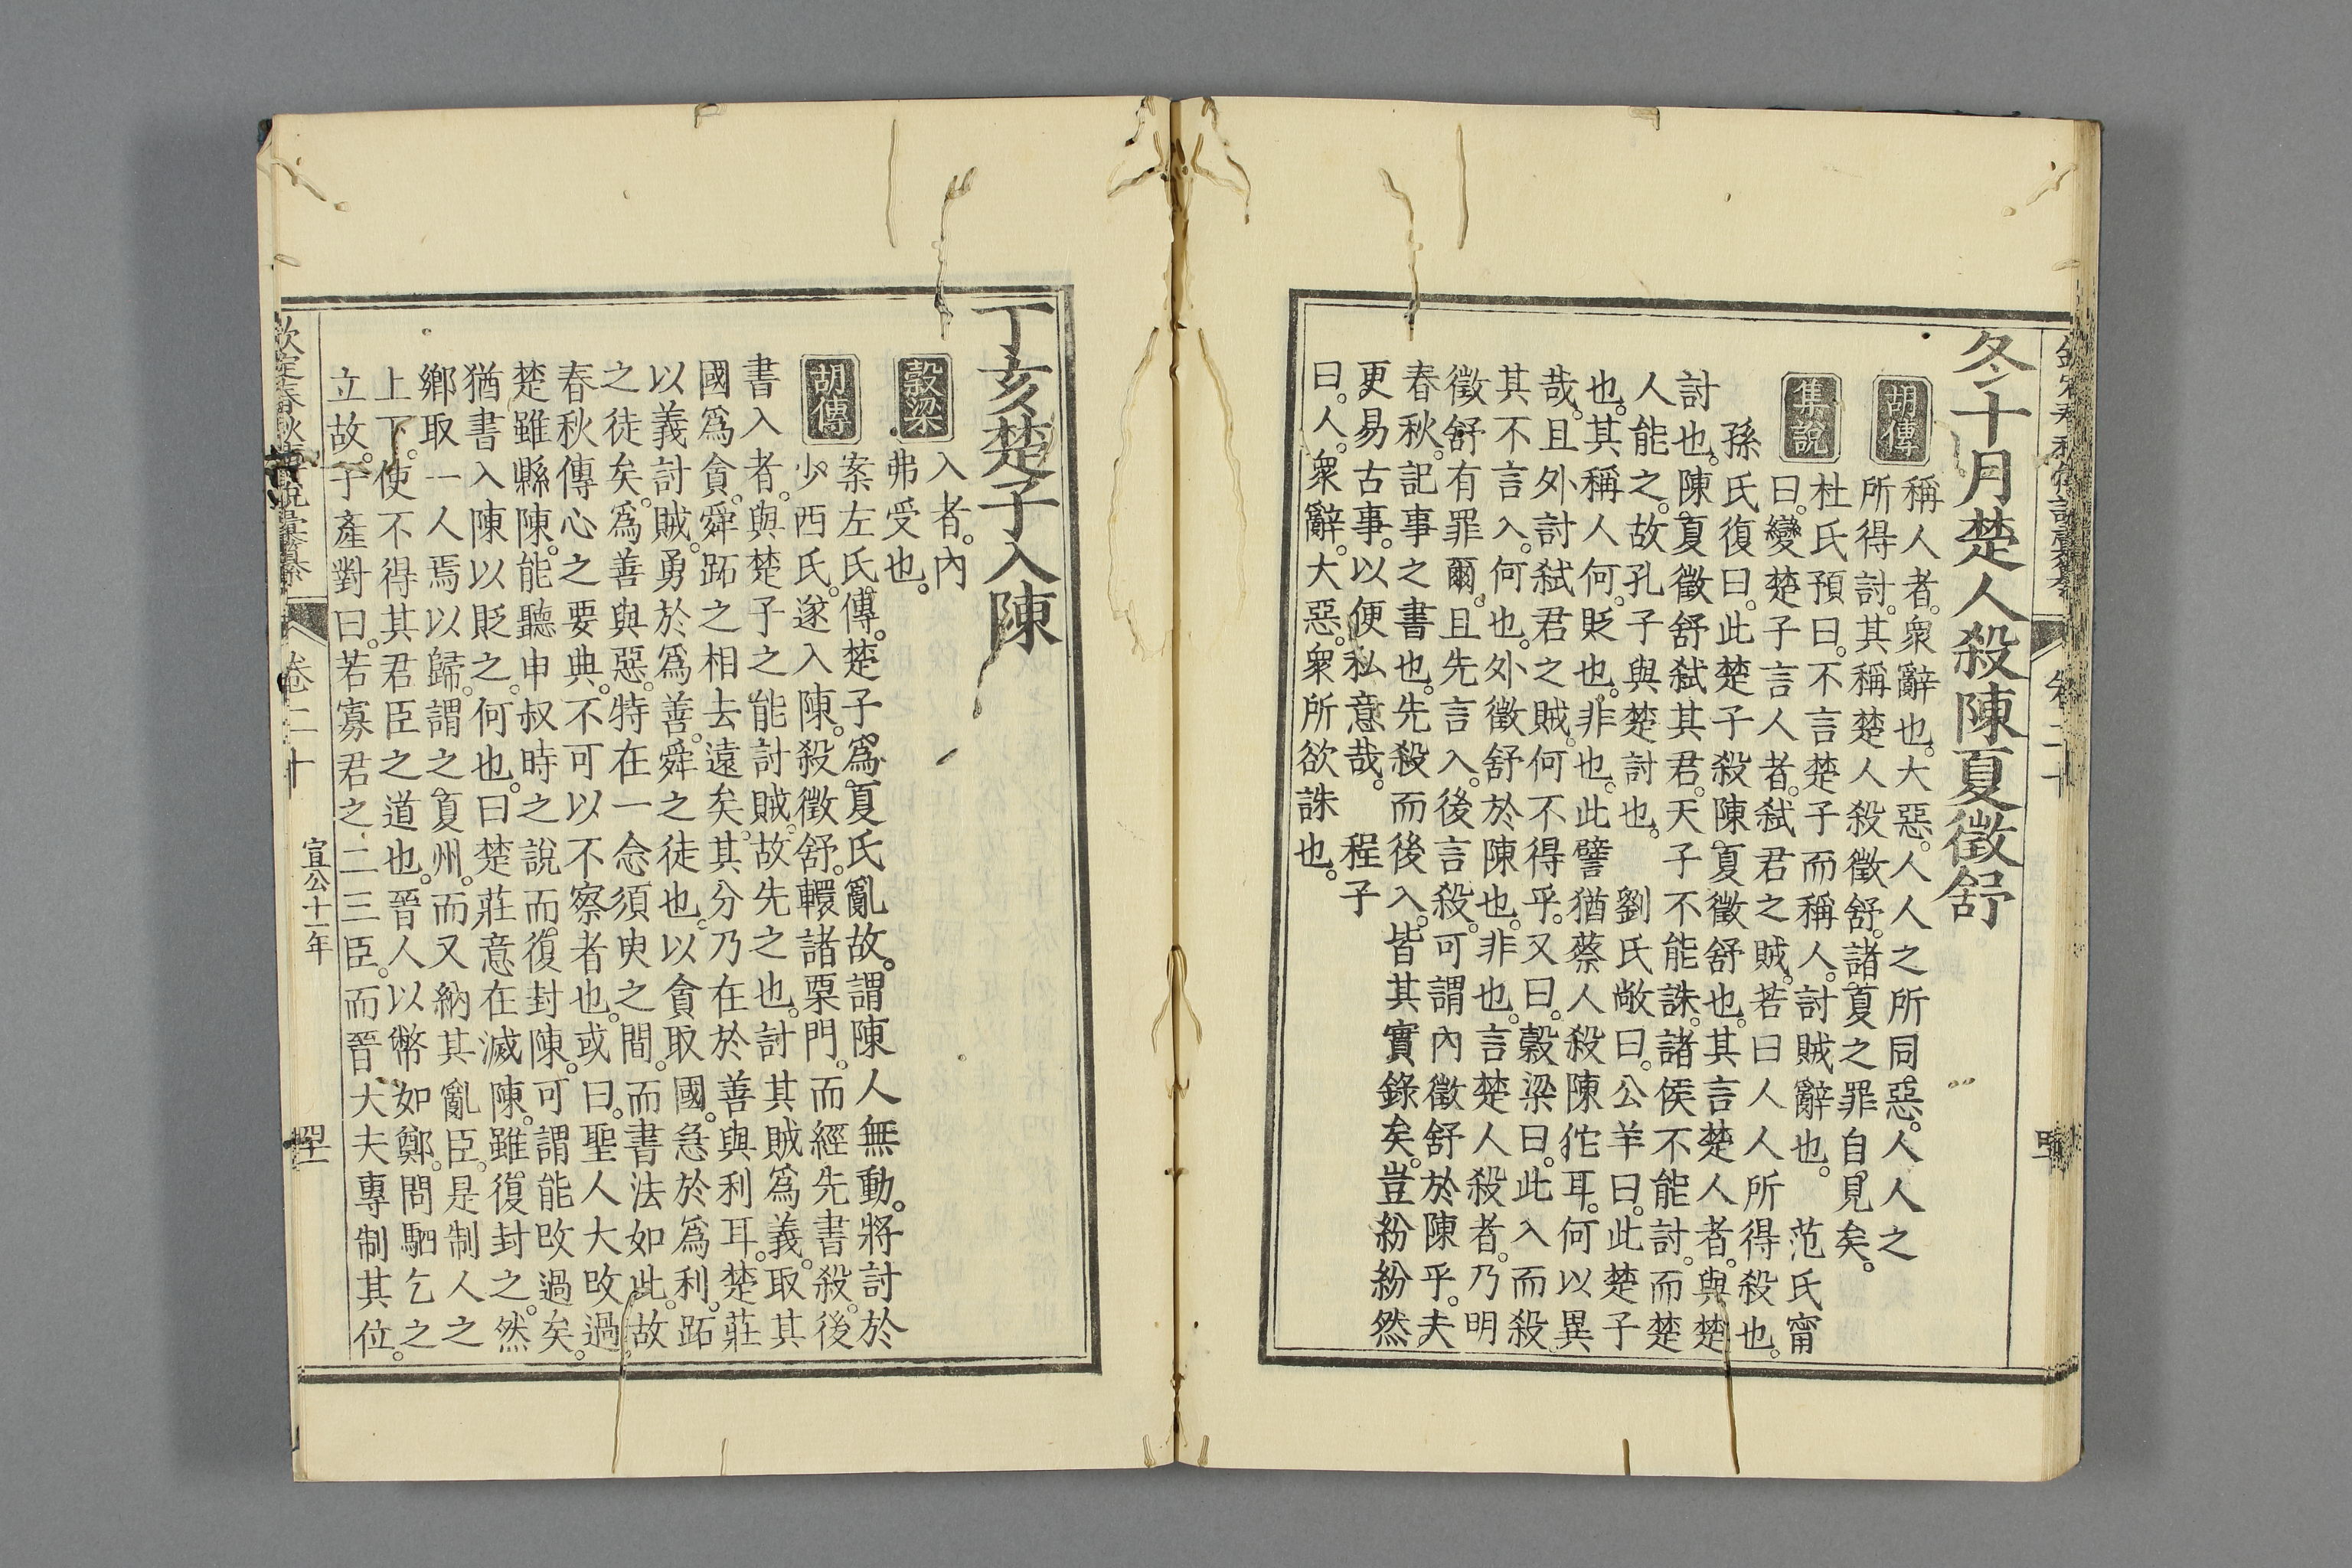 冬十月楚人殺陳夏徵舒
胡傳 稱人者。衆辭也。大惡。人人之所同惡。人人之
所得討。其稱楚人殺徵舒。諸夏之罪自見矣。
集說 杜氏預曰。不言楚子而稱人。討賊辭也。 范氏甯
曰。變楚子言人者。弑君之賊。若曰人人所得殺也。
孫氏復曰。此楚子殺陳夏徵舒也。其言楚人者。與楚
討也。陳夏徵舒弑其君。天子不能誅。諸侯不能討。而楚
人能之。故孔子與楚討也。 劉氏敞曰。公羊曰。此楚子
也。其稱人何。貶也。非也。此譬猶蔡人殺陳佗耳。何以異
哉。且外討弑君之賊。何不得乎。又曰。穀梁曰。此入而殺
其不言入。何也。外徵舒於陳也。非也。言楚人殺者。乃明
徵舒有罪爾。且先言入。後言殺。可謂內徵舒於陳乎。夫
春秋。記事之書也。先殺而後入。皆其實錄矣。豈紛紛然
更易古事。以便私意哉。 程子
曰。人。衆辭。大惡。衆所欲誅也。
丁亥楚子入陳
穀梁 入者。內
弗受也。
胡傳 案左氏傳。楚子爲夏氏亂故。謂陳人無動。將討於
少西氏。遂入陳。殺徵舒。轘諸栗門。而經先書殺。後
書入者。與楚子之能討賊。故先之也。討其賊爲義。取其
國爲貪。舜跖之相去遠矣。其分乃在於善與利耳。楚莊
以義討賊。勇於爲善。舜之徒也。以貪取國。急於爲利。跖
之徒矣。爲善與惡。特在一念須臾之間。而書法如此。故
春秋傳心之要典。不可以不察者也。或曰。聖人大改過。
楚雖縣陳。能聽申叔時之說。而復封陳。可謂能改過矣。
猶書入陳以貶之。何也。曰。楚莊意在滅陳。雖復封之。然
鄉取一人焉以歸。謂之夏州。而又納其亂臣。是制人之
上下。使不得其君臣之道也。晉人以幣如鄭。問駟乞之
立故。子產對曰。若寡君之二三臣。而晉大夫專制其位。
欽定春秋傳說彙纂 卷二十 宣公十一年